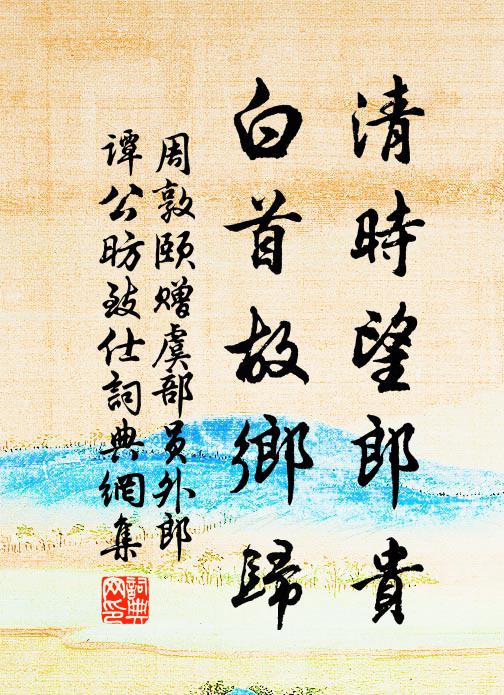 清時望郎貴
白首故鄉歸
周敦頤贈虞部员外郎
谭公昉致仕詞典網集
詞典
网印